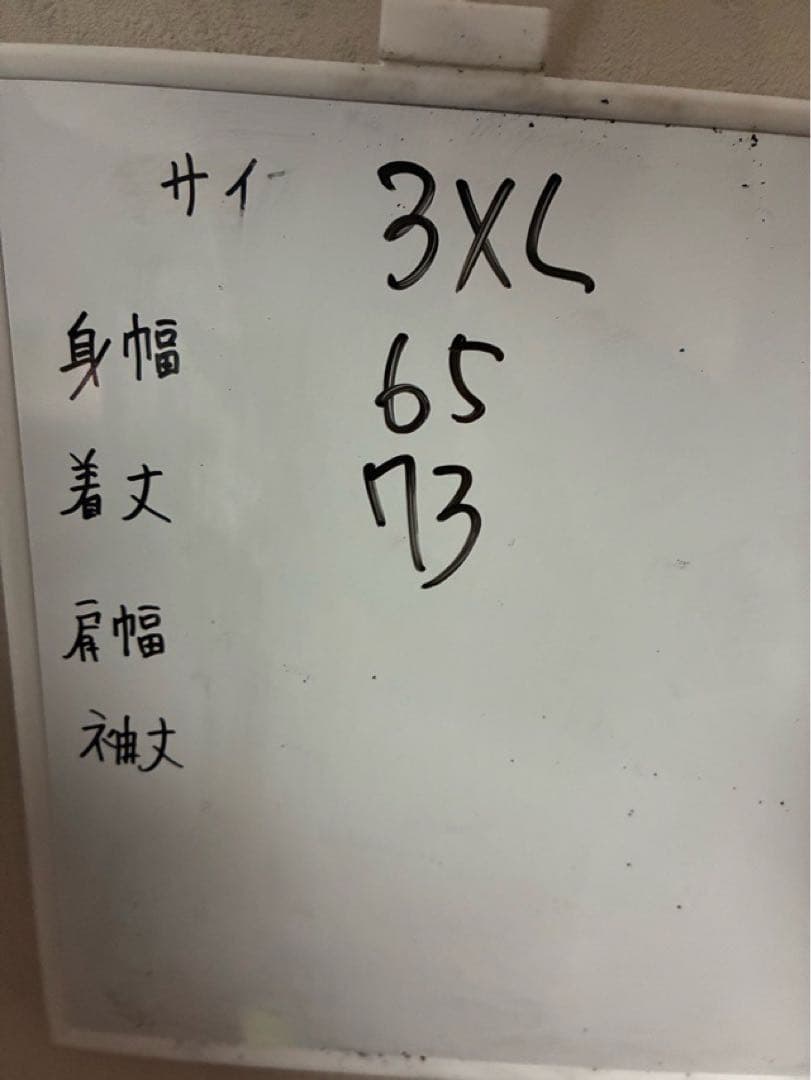 サイ 3XL
身幅 65
着丈 73
肩幅
袖丈